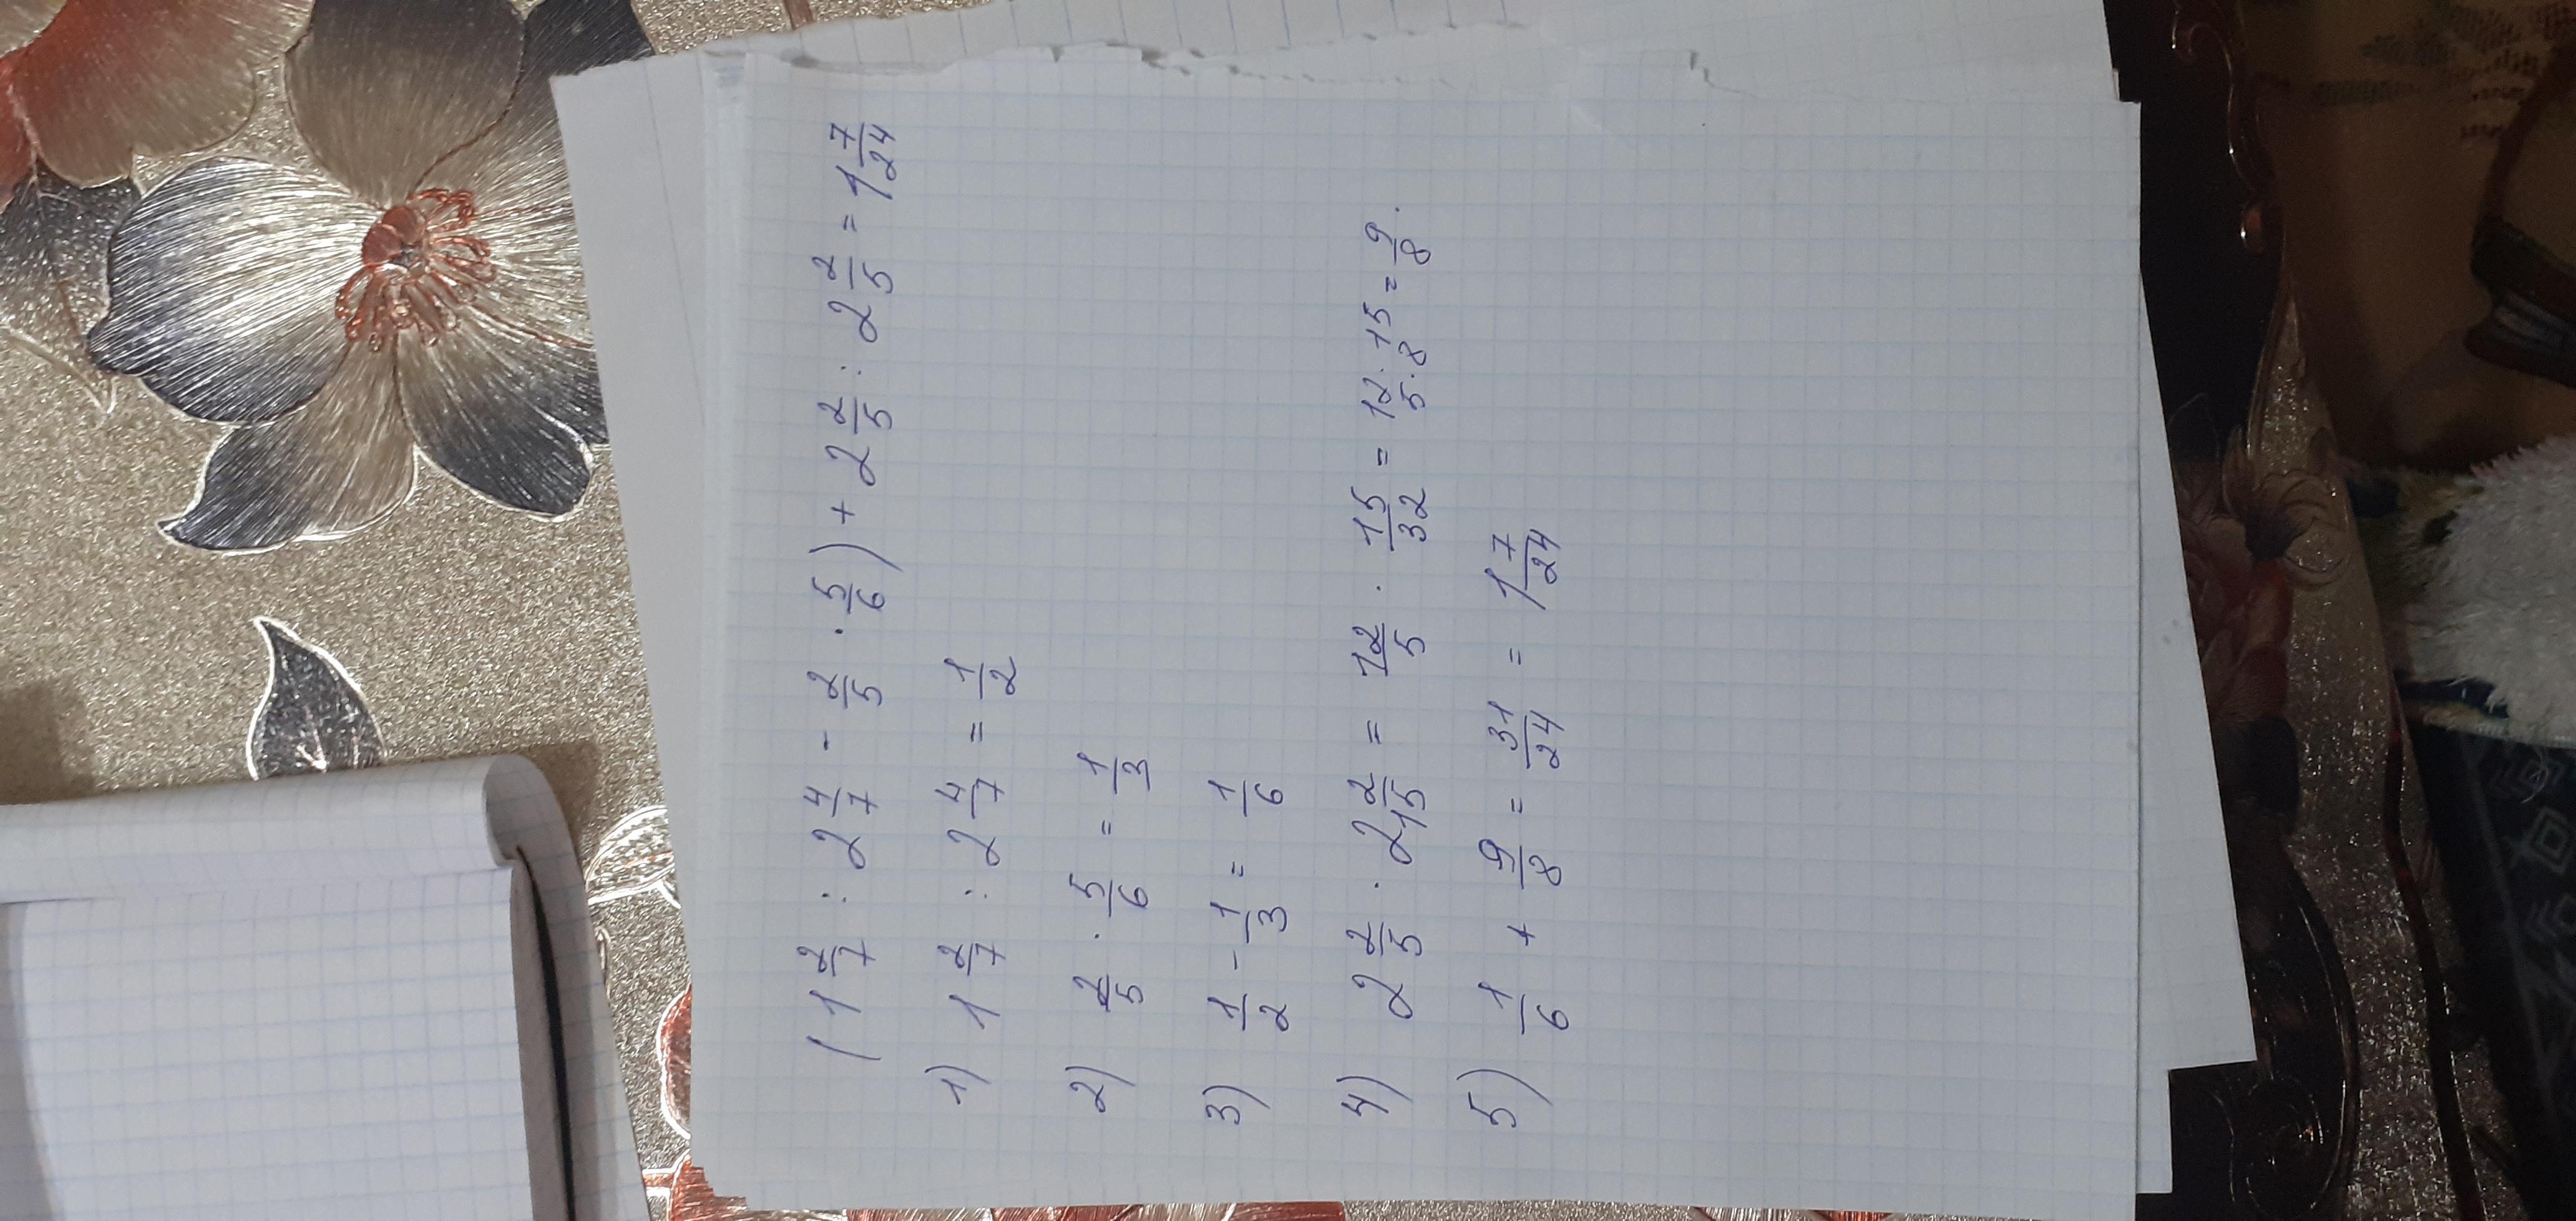 (1 2/7 : 2 4/7 - 2/5 · 5/6) + 2 2/5 : 2 2/5 = 1 7/24
1) 1 2/7 : 2 4/7 = 1/2
2) 2/5 · 5/6 = 1/3
3) 1/2 - 1/3 = 1/6
4) 2 2/5 · 2 2/15 = 12/5 · 15/32 = 12 · 15 / 5 · 8 = 9/8 .
5) 1/6 + 9/8 = 31/24 = 1 7/24